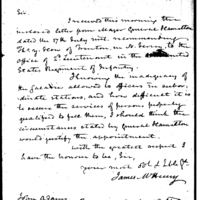 Sir.
I received this morning the
inclosed letter from Major General Hamilton
dated the 17th July inst. recommending
of Trenton, in N. Jersey, to the
office of 2d Lieutenant in the
States Regiment of Infantry.
Knowing the inadequacy of
the salaries allowed to officers in subor-
dinate stations, and how difficult it is
to secure the services of persons properly
qualified to fill them, I should think the
circumstances stated by General Hamilton
would justify the appointment.
with the greatest respect I
have the honour to be, Sir,
your most Obt. & Hble St.
James McHenry
John Adams